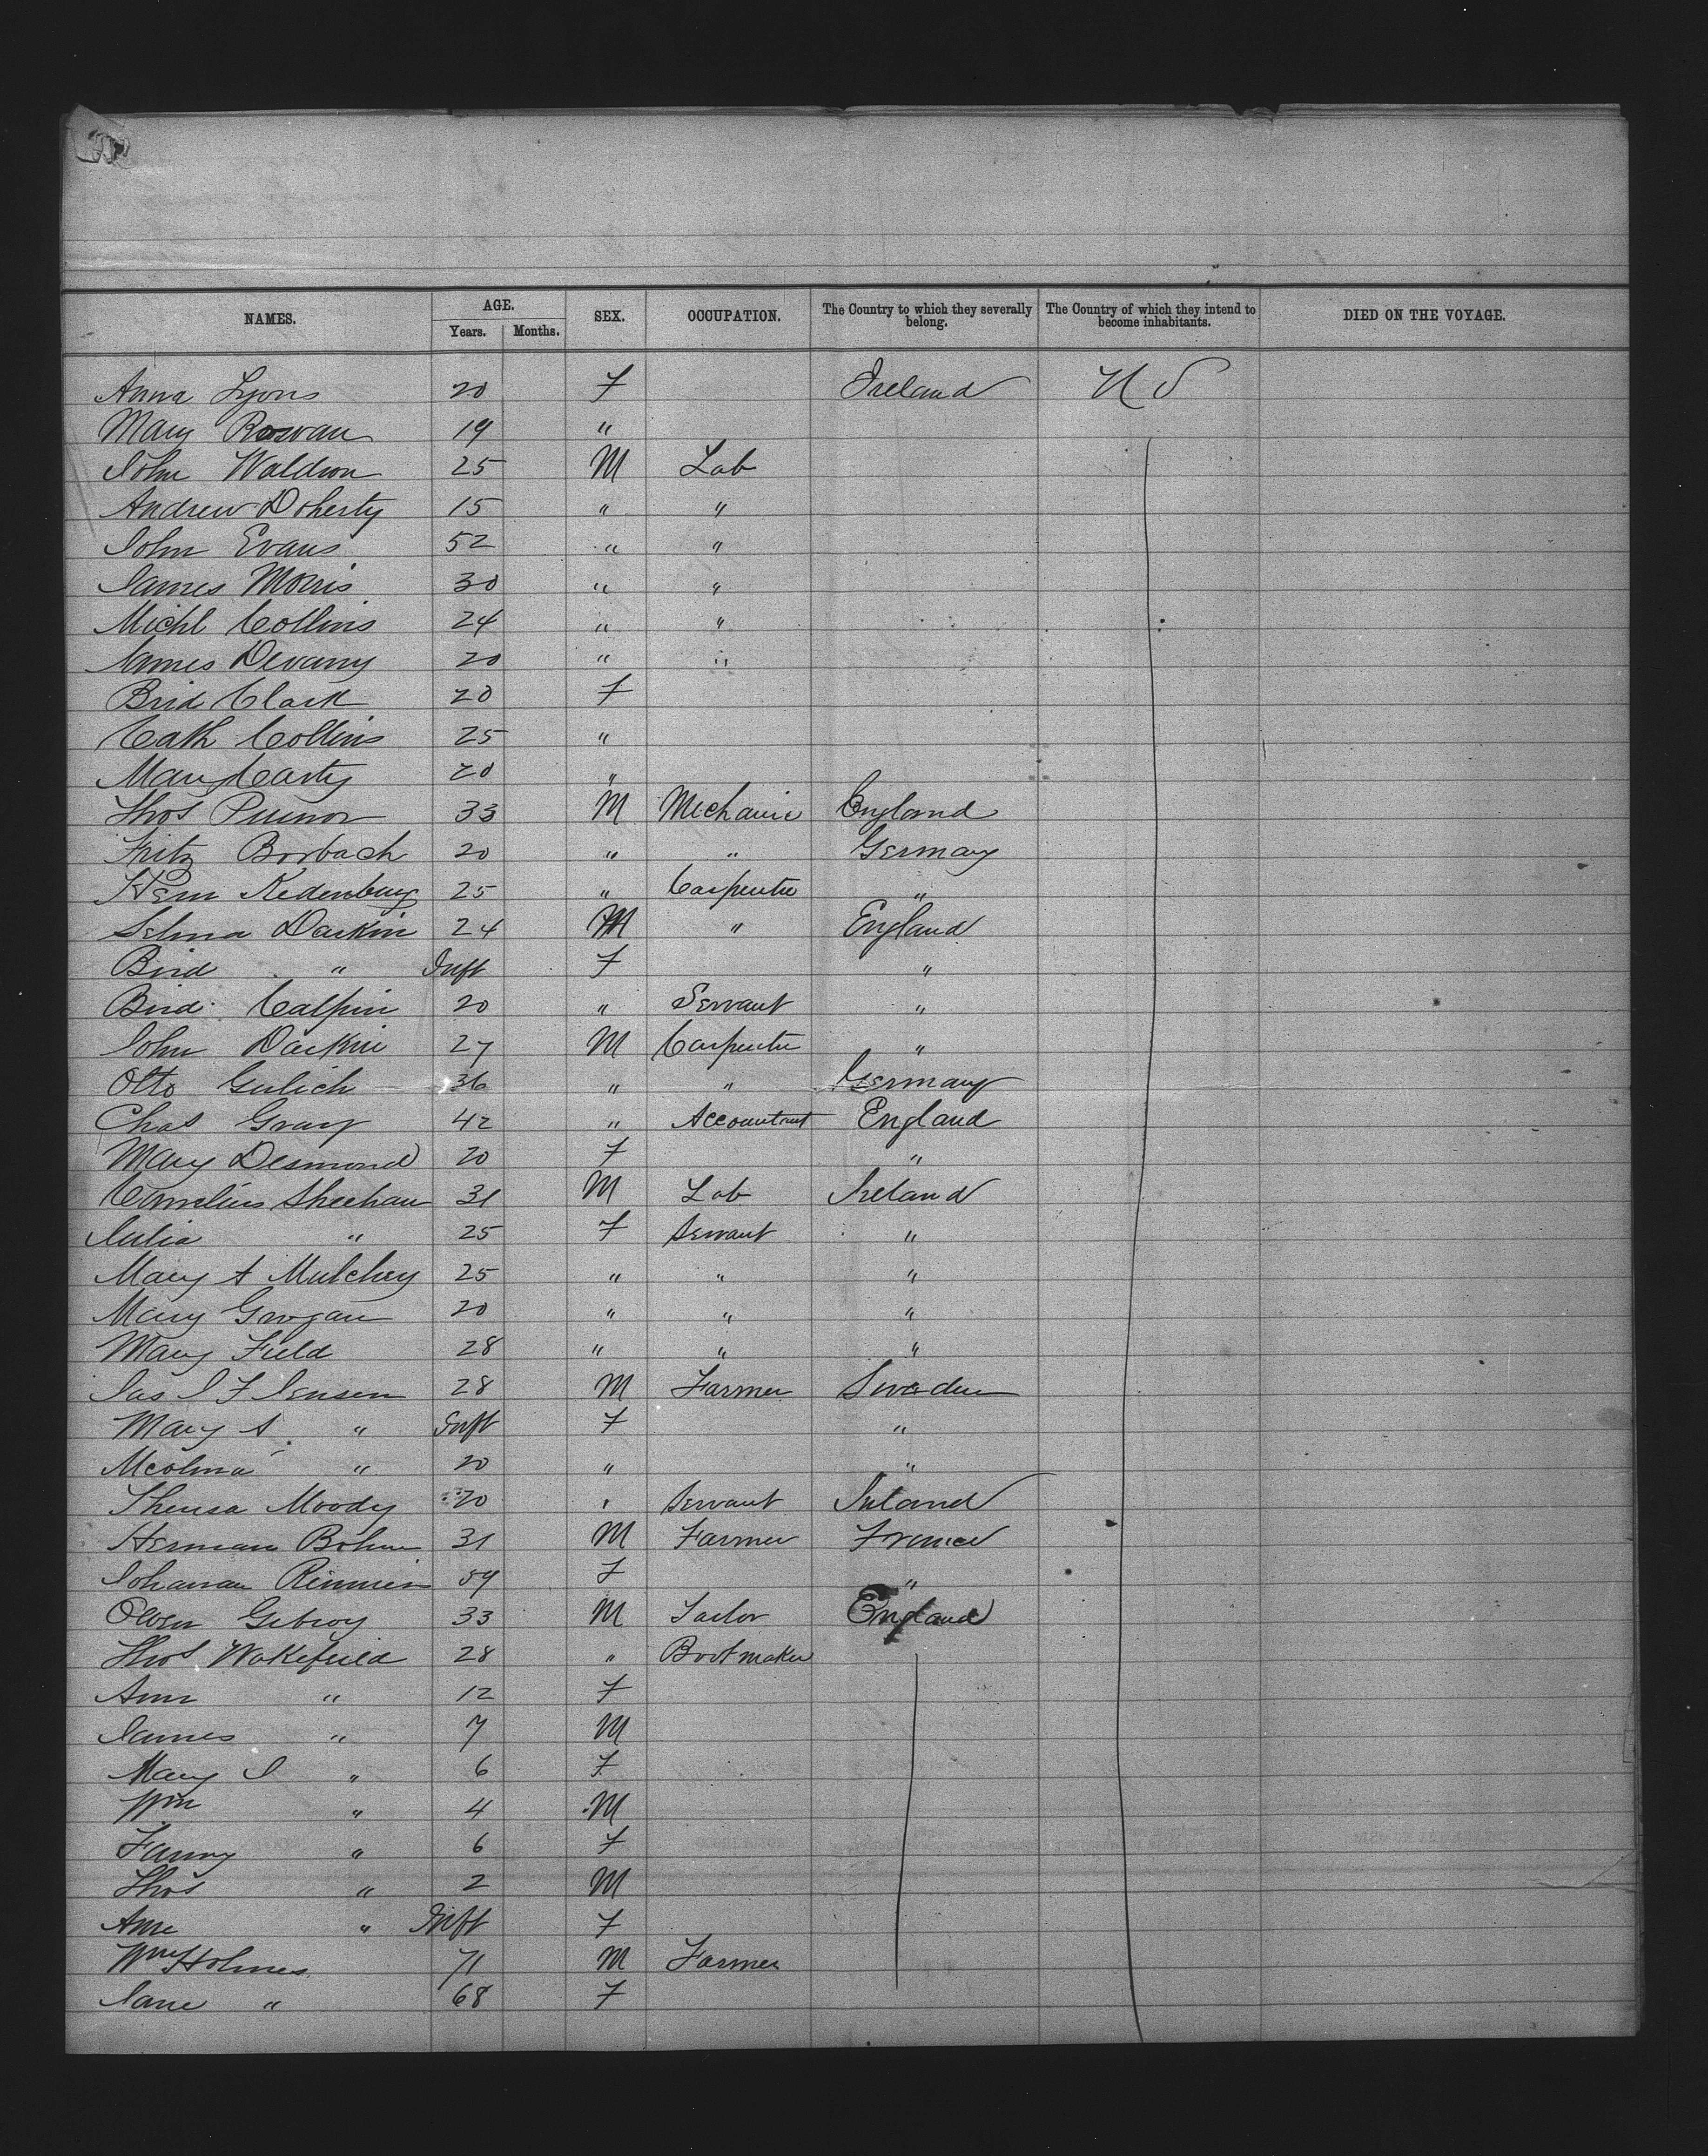 NAMES. AGE. SEX. OCCUPATION. The Country to which they severally belong. The Country of which they intend to become inhabitants. DIED ON THE VOYAGE.
Years. Months.
Anna Lyons 20 F Ireland U S
Mary Rowan 19 "
John Waldron 25 M Lab
Andrew Doherty 15 " "
John Evans 52 " "
James Morris 30 " "
Michl Collins 24 " "
James Devany 20 " "
Brid Clark 20 F
Cath Collins 25 "
Mary Carty 20 "
Thos 33 M Mechanic England
Fritz Borbach 20 " " Germany
Herm Kedenburg 25 " Carpenter "
Selma Darkin 24 M " England
Brid " Inft F "
Brid Calpin 20 " Servant "
John Darkin 27 M Carpenter "
Otto Gulich 36 " " Germany
Chas Gray 42 " Accountant England
Mary Desmond 20 F "
Cornelius Sheehan 31 M Lab Ireland
Julia " 25 F Servant "
Mary A Mulchey 25 " " "
Mary Grogan 20 " " "
Mary Field 28 " " "
Jas J F Jensen 28 M Farmer Sweden
Mary A " Inft F "
" 20 " "
Theresa Moody 20 " Servant Ireland
Herman Bohm 31 M Farmer France
Johanan 59 F "
33 M Tailor England
Thos Wakefield 28 " Bootmaker
Ann " 12 F
James " 7 M
Mary J " 6 F
Wm " 4 M
Fanny " 6 F
Thos " 2 M
Ame " Inft F
Wm Holmes 71 M Farmer
Jane " 68 F